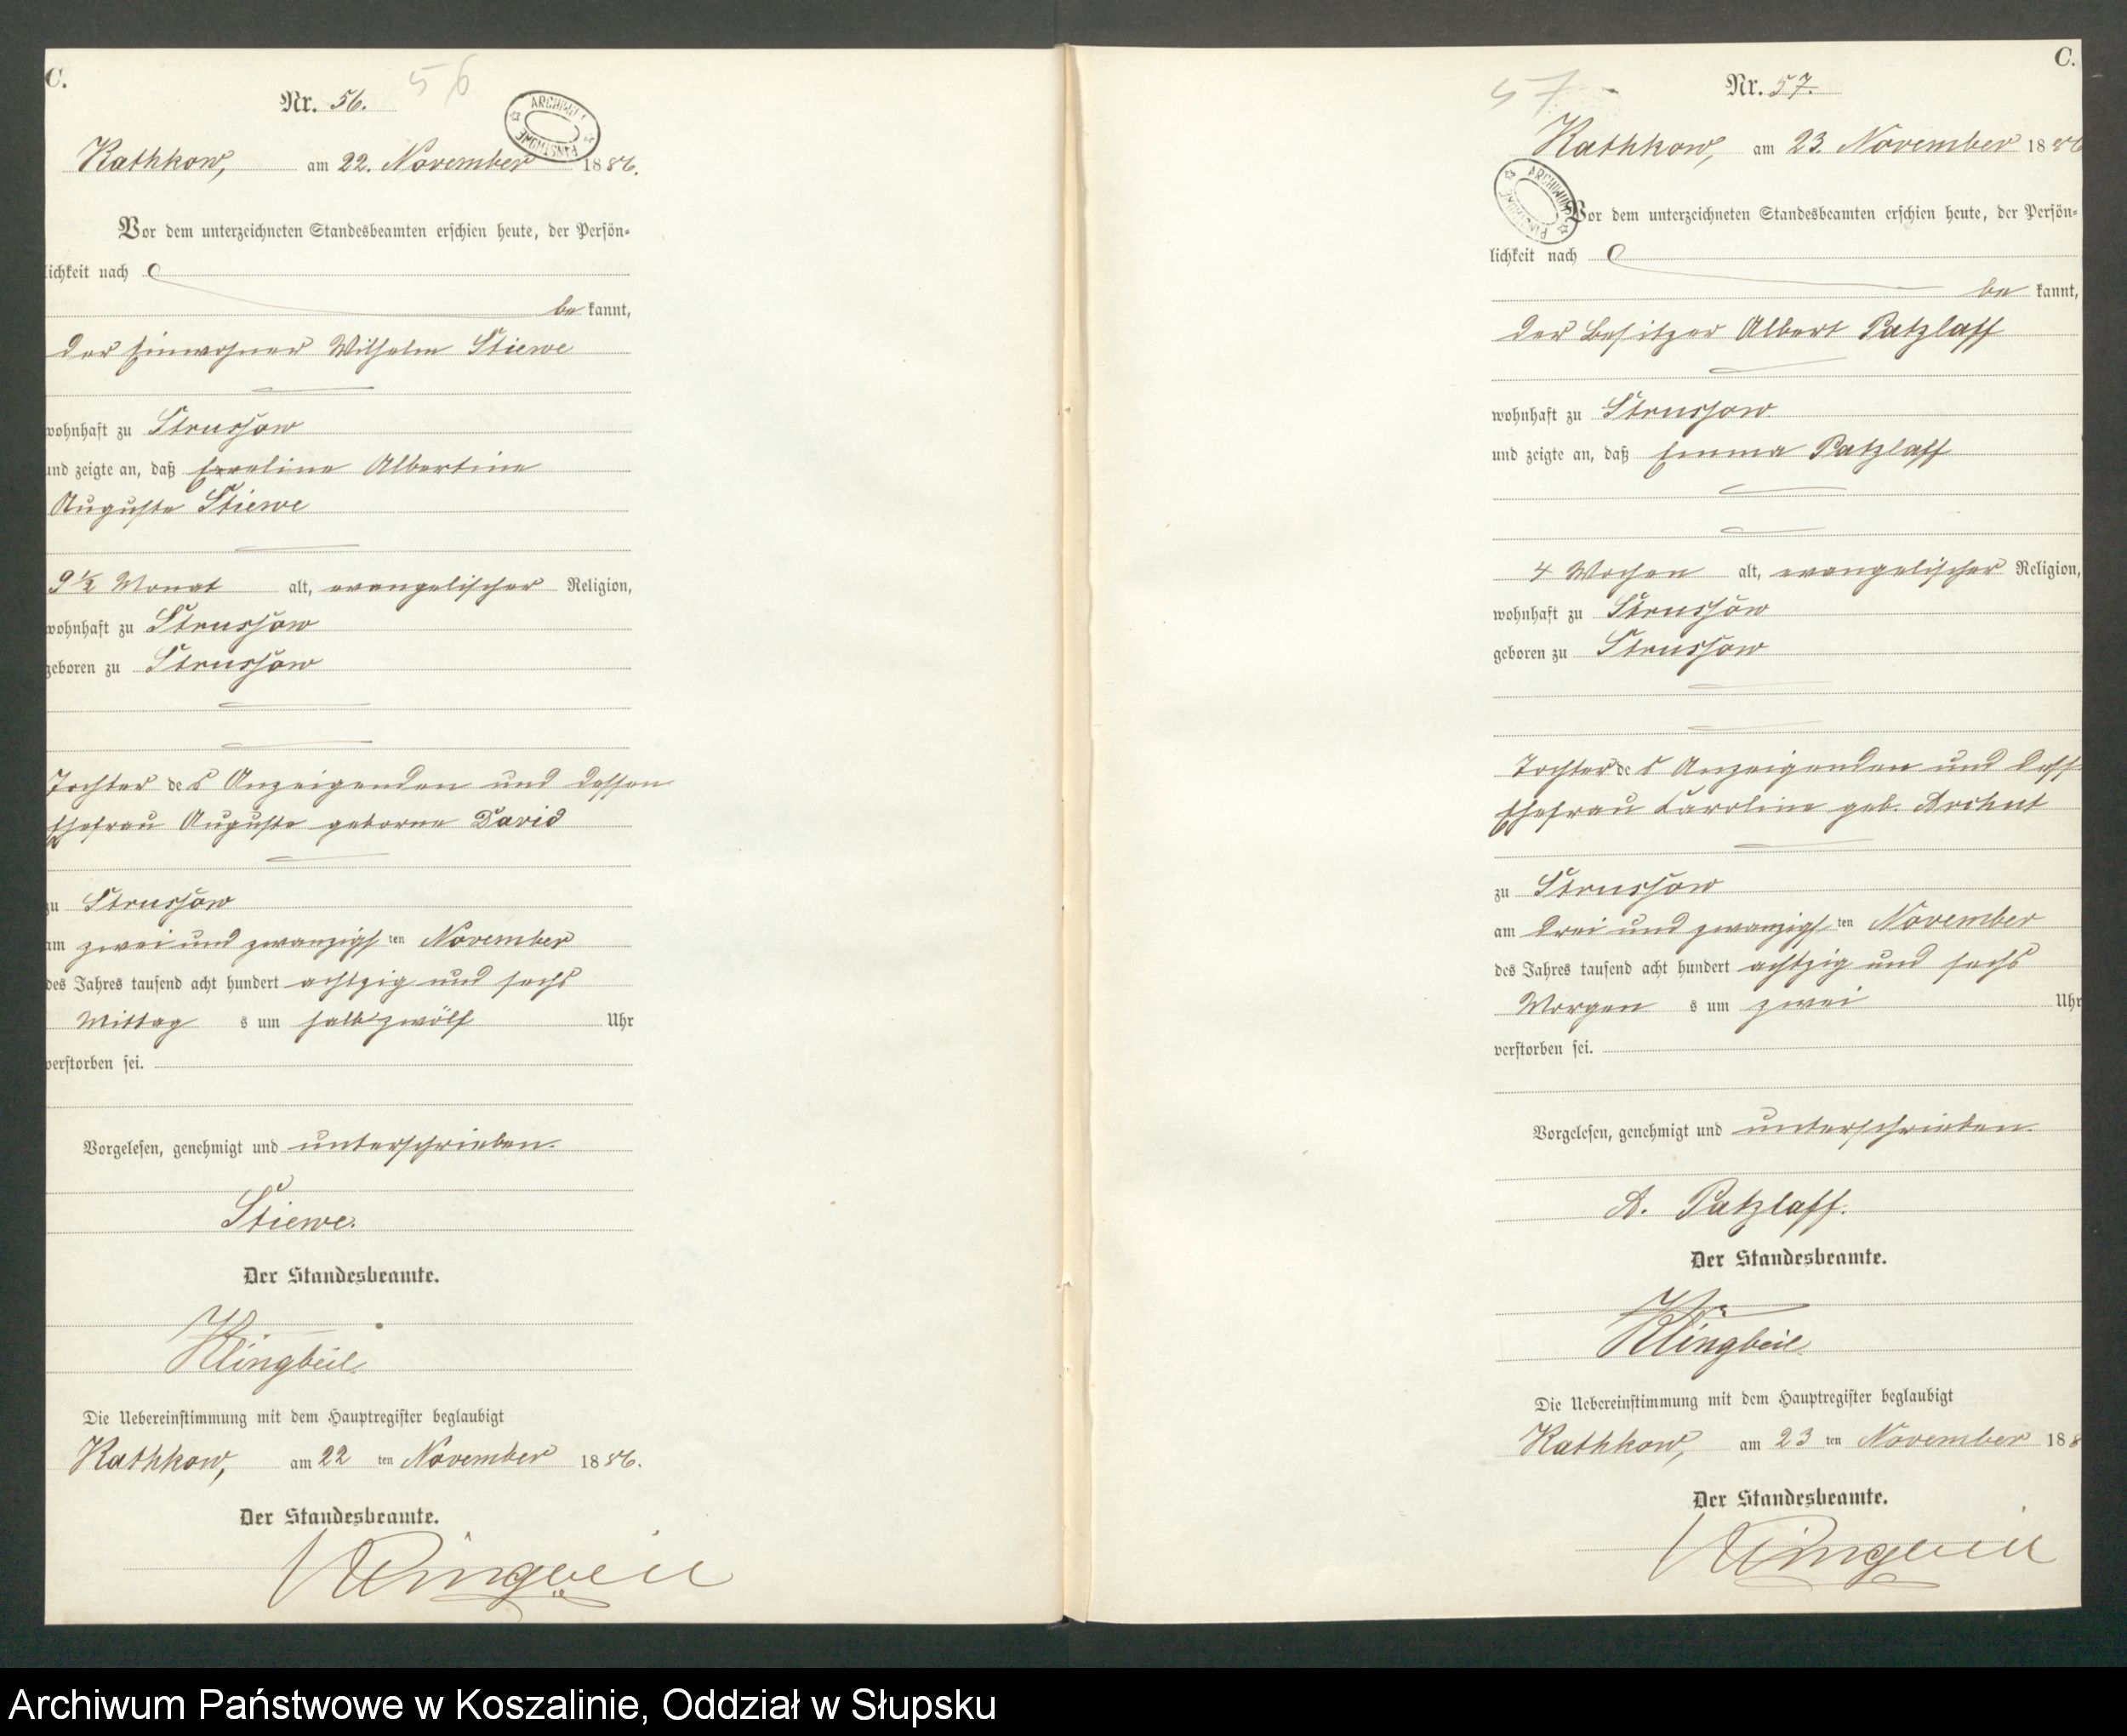 C.
Nr. 56.
56
ARCHIWUM PAŃSTWOWE
Kathkow, am 22. November 1886.
Vor dem unterzeichneten Standesbeamten erschien heute, der Persön-
lichkeit nach
be kannt,
der Einwohner Wilhelm Stiewe
wohnhaft zu Strussow
und zeigte an, daß Eveline Albertine
Auguste Stiewe
9 1/2 Monat alt, evangelischer Religion,
wohnhaft zu Strussow
geboren zu Strussow
Tochter des Anzeigenden und dessen
Ehefrau Auguste geborne David
zu Strussow
am zwei und zwanzigsten November
des Jahres tausend acht hundert achtzig und sechs
Mittags um halb zwölf Uhr
verstorben sei.
Vorgelesen, genehmigt und unterschrieben.
Stiewe.
Der Standesbeamte.
Klingbeil
Die Uebereinstimmung mit dem Hauptregister beglaubigt
Kathkow, am 22 ten November 1886.
Der Standesbeamte.
Klingbeil
C.
Nr. 57.
57
Kathkow, am 23. November 1886
ARCHIWUM PAŃSTWOWE
Vor dem unterzeichneten Standesbeamten erschien heute, der Persön-
lichkeit nach
be kannt,
der Besitzer Albert Patzlaff
wohnhaft zu Strussow
und zeigte an, daß Emma Patzlaff
4 Wochen alt, evangelischer Religion,
wohnhaft zu Strussow
geboren zu Strussow
Tochter des Anzeigenden und dess
Ehefrau Caroline geb. Arohnt
zu Strussow
am drei und zwanzigsten November
des Jahres tausend acht hundert achtzig und sechs
Morgens um zwei Uhr
verstorben sei.
Vorgelesen, genehmigt und unterschrieben.
A. Patzlaff.
Der Standesbeamte.
Klingbeil
Die Uebereinstimmung mit dem Hauptregister beglaubigt
Kathkow, am 23 ten November 188
Der Standesbeamte.
Klingbeil
Archiwum Państwowe w Koszalinie, Oddział w Słupsku